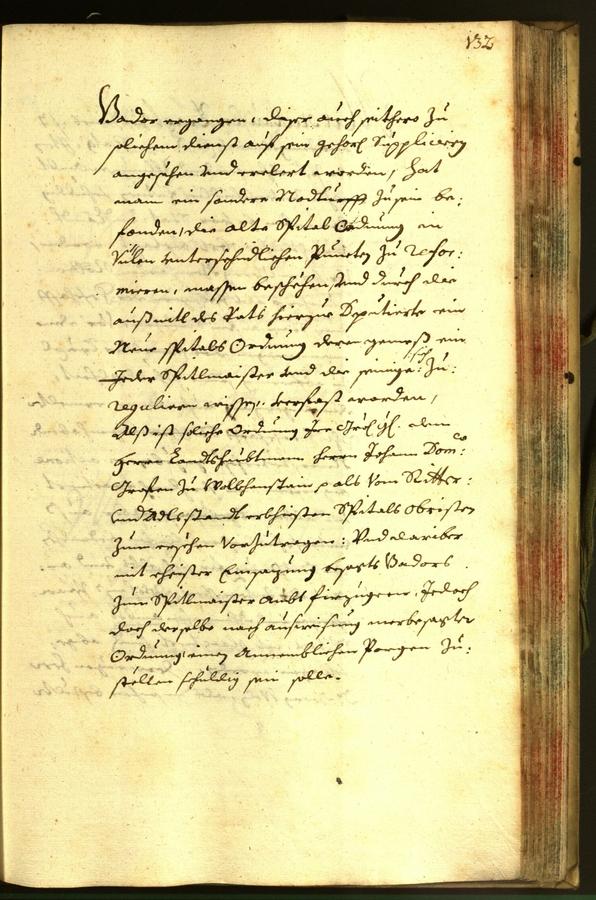 132
Bador ergangen, diser auch seithero zu
solichem dienst auf sein gehors: Suppliciern
angesehen und erclert worden, hat
man ein sondere Nodturfft zusein be:
fonden, die alte Spital Ordnung in
Vilen unterschidlichen Puncten zu refor:
mieren, massen beschehen, und durch die
auß mitl des Rats hierzue Deputierte ein
Neue Spitals Ordnung deren gemeß ein
Jeder Spitlmaister und die seinige sich zu:
reguliern wissen, verfast worden,
Alß ist soliche Ordnung Ire dem
Herrn Landtshaubtman Herrn Johann Dom:co
Grafen zu Wolkhenstain als vom Ritter:
und Adlsstandt erkhiesten Spitals Obristen
zum ersehen vorzutragen: Und alsdan
mit Einsazung besagts Badors
zum Spitlmaister Ambt fürzugeen, Jedoch
doch derselbe nach ausweisung merbesagter
Ordnung einen Annemblichen Porgen zu:
stellen schuldig sein solle.